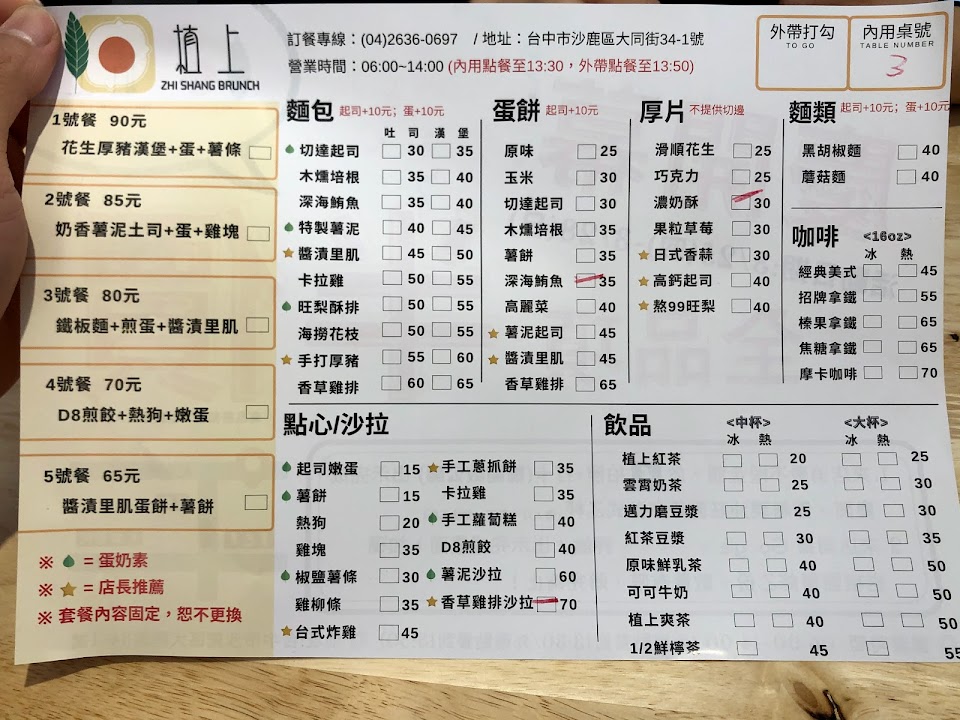 植上
ZHI SHANG BRUNCH
訂餐專線：(04)2636-0697 / 地址：台中市沙鹿區大同街34-1號
營業時間：06:00~14:00 (內用點餐至13:30，外帶點餐至13:50)
外帶打勾
TO GO
內用桌號
TABLE NUMBER
3
1號餐 90元
花生厚豬漢堡+蛋+薯條
2號餐 85元
奶香薯泥土司+蛋+雞塊
3號餐 80元
鐵板麵+煎蛋+醬漬里肌
4號餐 70元
D8煎餃+熱狗+嫩蛋
5號餐 65元
醬漬里肌蛋餅+薯餅
※ = 蛋奶素
※ = 店長推薦
※ 套餐內容固定，恕不更換
麵包 起司+10元；蛋+10元
吐司 漢堡
切達起司 30 35
木燻培根 35 40
深海鮪魚 35 40
特製薯泥 40 45
醬漬里肌 45 50
卡拉雞 50 55
旺梨酥排 50 55
海撈花枝 50 55
手打厚豬 55 60
香草雞排 60 65
蛋餅 起司+10元
原味 25
玉米 30
切達起司 30
木燻培根 35
薯餅 35
深海鮪魚 35
高麗菜 40
薯泥起司 45
醬漬里肌 45
香草雞排 65
厚片 不提供切邊
滑順花生 25
巧克力 25
濃奶酥 30
果粒草莓 30
日式香蒜 30
高鈣起司 40
熬99旺梨 40
麵類 起司+10元；蛋+10元
黑胡椒麵 40
蘑菇麵 40
咖啡 <16oz>
冰 熱
經典美式 45
招牌拿鐵 55
榛果拿鐵 65
焦糖拿鐵 65
摩卡咖啡 70
點心/沙拉
起司嫩蛋 15
薯餅 15
熱狗 20
雞塊 35
椒鹽薯條 30
雞柳條 35
台式炸雞 45
手工蔥抓餅 35
卡拉雞 35
手工蘿蔔糕 40
D8煎餃 40
薯泥沙拉 60
香草雞排沙拉 70
飲品 <中杯> <大杯>
冰 熱 冰 熱
植上紅茶 20 25
雲霄奶茶 25 30
邁力磨豆漿 25 30
紅茶豆漿 30 35
原味鮮乳茶 40 50
可可牛奶 40 50
植上爽茶 40 50
1/2鮮檸茶 45 55